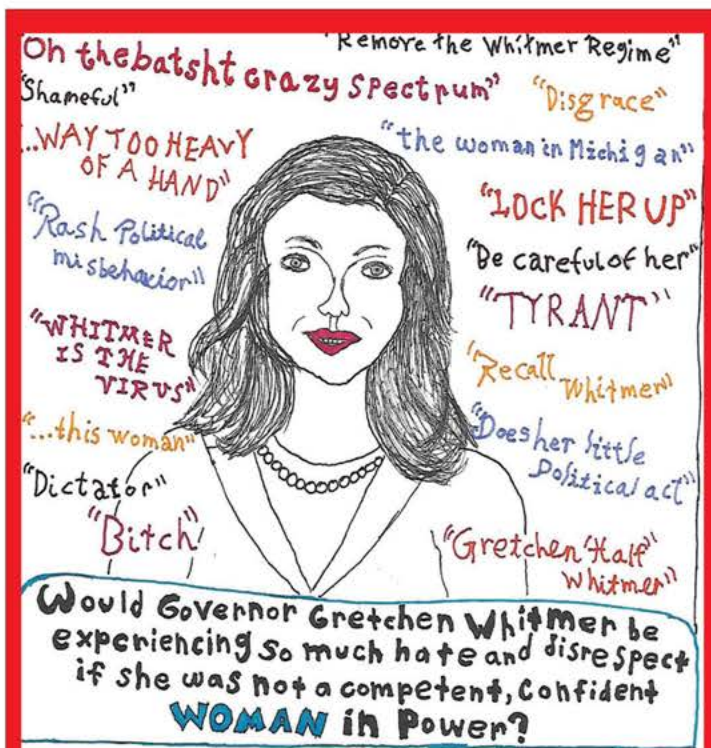 "Remove the Whitmer Regime"
On thebatsht crazy spectrum"
"Shameful"
"Disgrace"
"the woman in Michigan"
...WAY TOO HEAVY
OF A HAND"
"LOCK HER UP"
"Rash Political
misbehavior"
"Be careful of her"
"TYRANT"
"WHITMER
IS THE
VIRUS"
"Recall
Whitmer"
"...this woman"
"Does her little
Political act"
"Dictator"
"Bitch"
"Gretchen 'Half'
Whitmer"
Would Governor Gretchen Whitmer be
experiencing so much hate and disrespect
if she was not a competent, confident
WOMAN in Power?